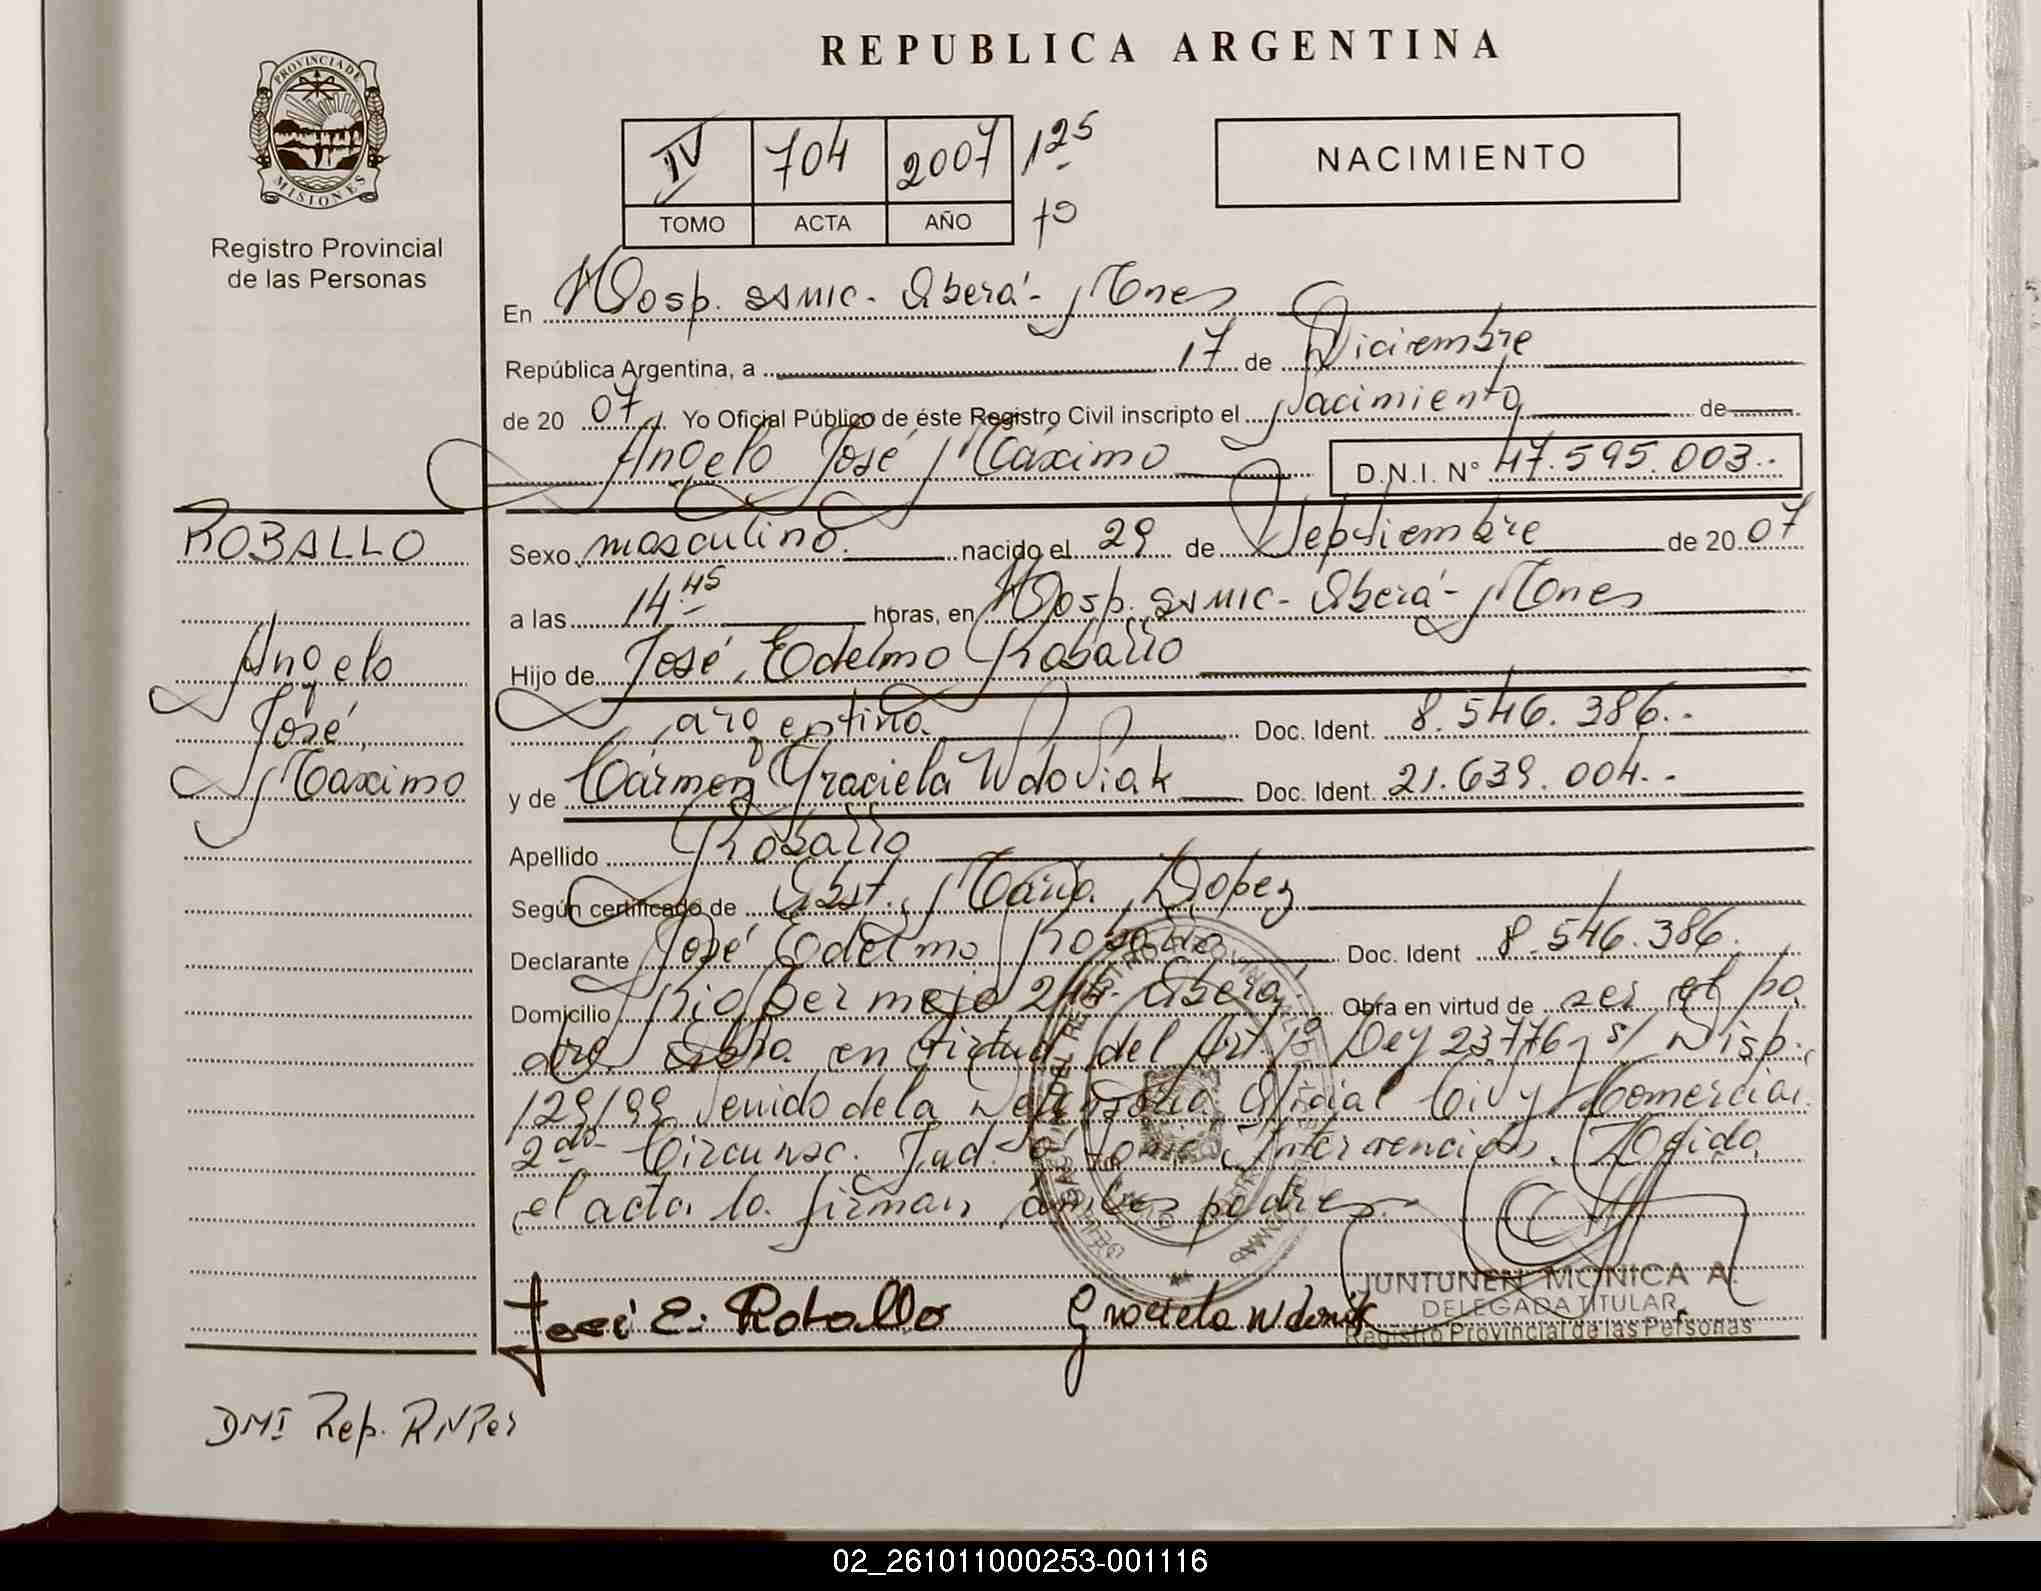 REPUBLICA ARGENTINA
PROVINCIA DE
MISIONES
Registro Provincial
de las Personas
IV 704 2007 125
TOMO ACTA AÑO
NACIMIENTO
En Hosp. SAMIC - Oberá - Mnes
República Argentina, a 17 de Diciembre
de 20 07. Yo Oficial Público de éste Registro Civil inscripto el Nacimiento de
Angelo José Máximo D.N.I. N° 47.595.003.-
ROBALLO
Angelo
José
Maximo
Sexo masculino. nacido el 29 de Septiembre de 20 07
a las 14.45 horas, en Hosp. SAMIC - Oberá - Mnes
Hijo de José Edelmo Roballo
argentino. Doc. Ident. 8.546.386.-
y de Cármen Graciela Wdoviak Doc. Ident. 21.639.004.-
Apellido Roballo
Según certificado de Obst. María Lopez
Declarante José Edelmo Roballo Doc. Ident 8.546.386.
Domicilio Rio Bermejo 244. Oberá. Obra en virtud de ser el pa
dre. Obra en virtud del Art. 1º Ley 23776 y s/ Disp.
129/99 Venido de la Defensoria Oficial Civ y Comercial
2da Circunsc. Jud. Leida
el acta la firman ambos padres.-
José E. Roballo Graciela Wdoviak
JUNTUNEN MONICA A.
DELEGADA TITULAR
Registro Provincial de las Personas
DMI Rep. RNPer
02_261011000253-001116